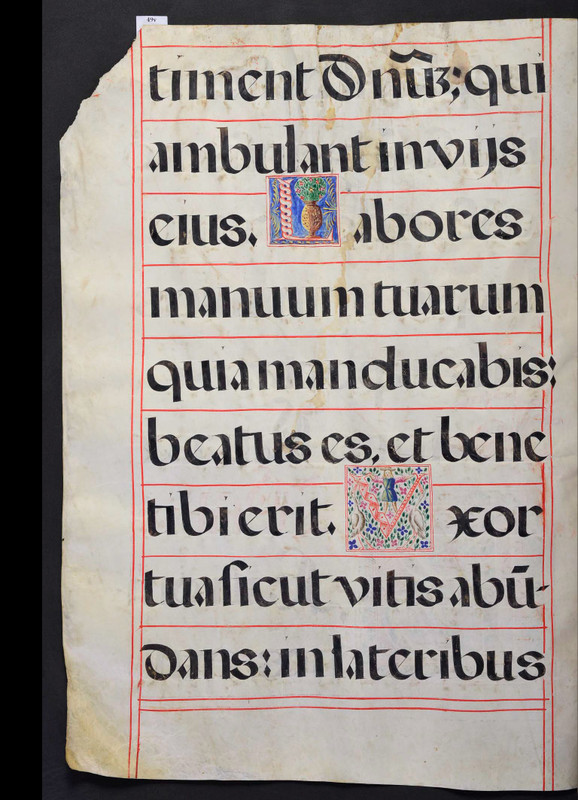 timent Dnũȝ; qui
ambulant in vijs
eius. Labores
manuum tuarum
quia manducabis:
beatus es, et bene
tibi erit. Vxor
tua ſicut vitis abũ-
dans: in lateribus